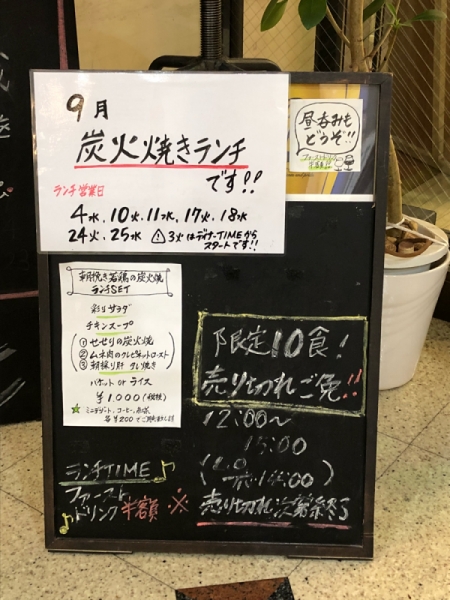 9月
炭火焼きランチ
です!!
ランチ営業日
4水、10火、11水、17火、18水
24火、25水 ⚠3火はディナーTIMEから
スタートです!!
昼呑みも
どうぞ!!
朝挽き若鶏の炭火焼
ランチSET
彩りサラダ
チキンスープ
①せせりの炭火焼
②ムネ肉のタレと味ネットロースト
③朝採り肝 タレ焼き
バケット or ライス
￥1,000(税抜)
★ミニデザート、コーヒー、烏龍
各￥200でご用意致します
限定10食!
売り切れご免!!
12:00〜
15:00
(L.O
14:00)
売り切れ次第終了
ランチTIME♪
ファースト
♪ドリンク半額※